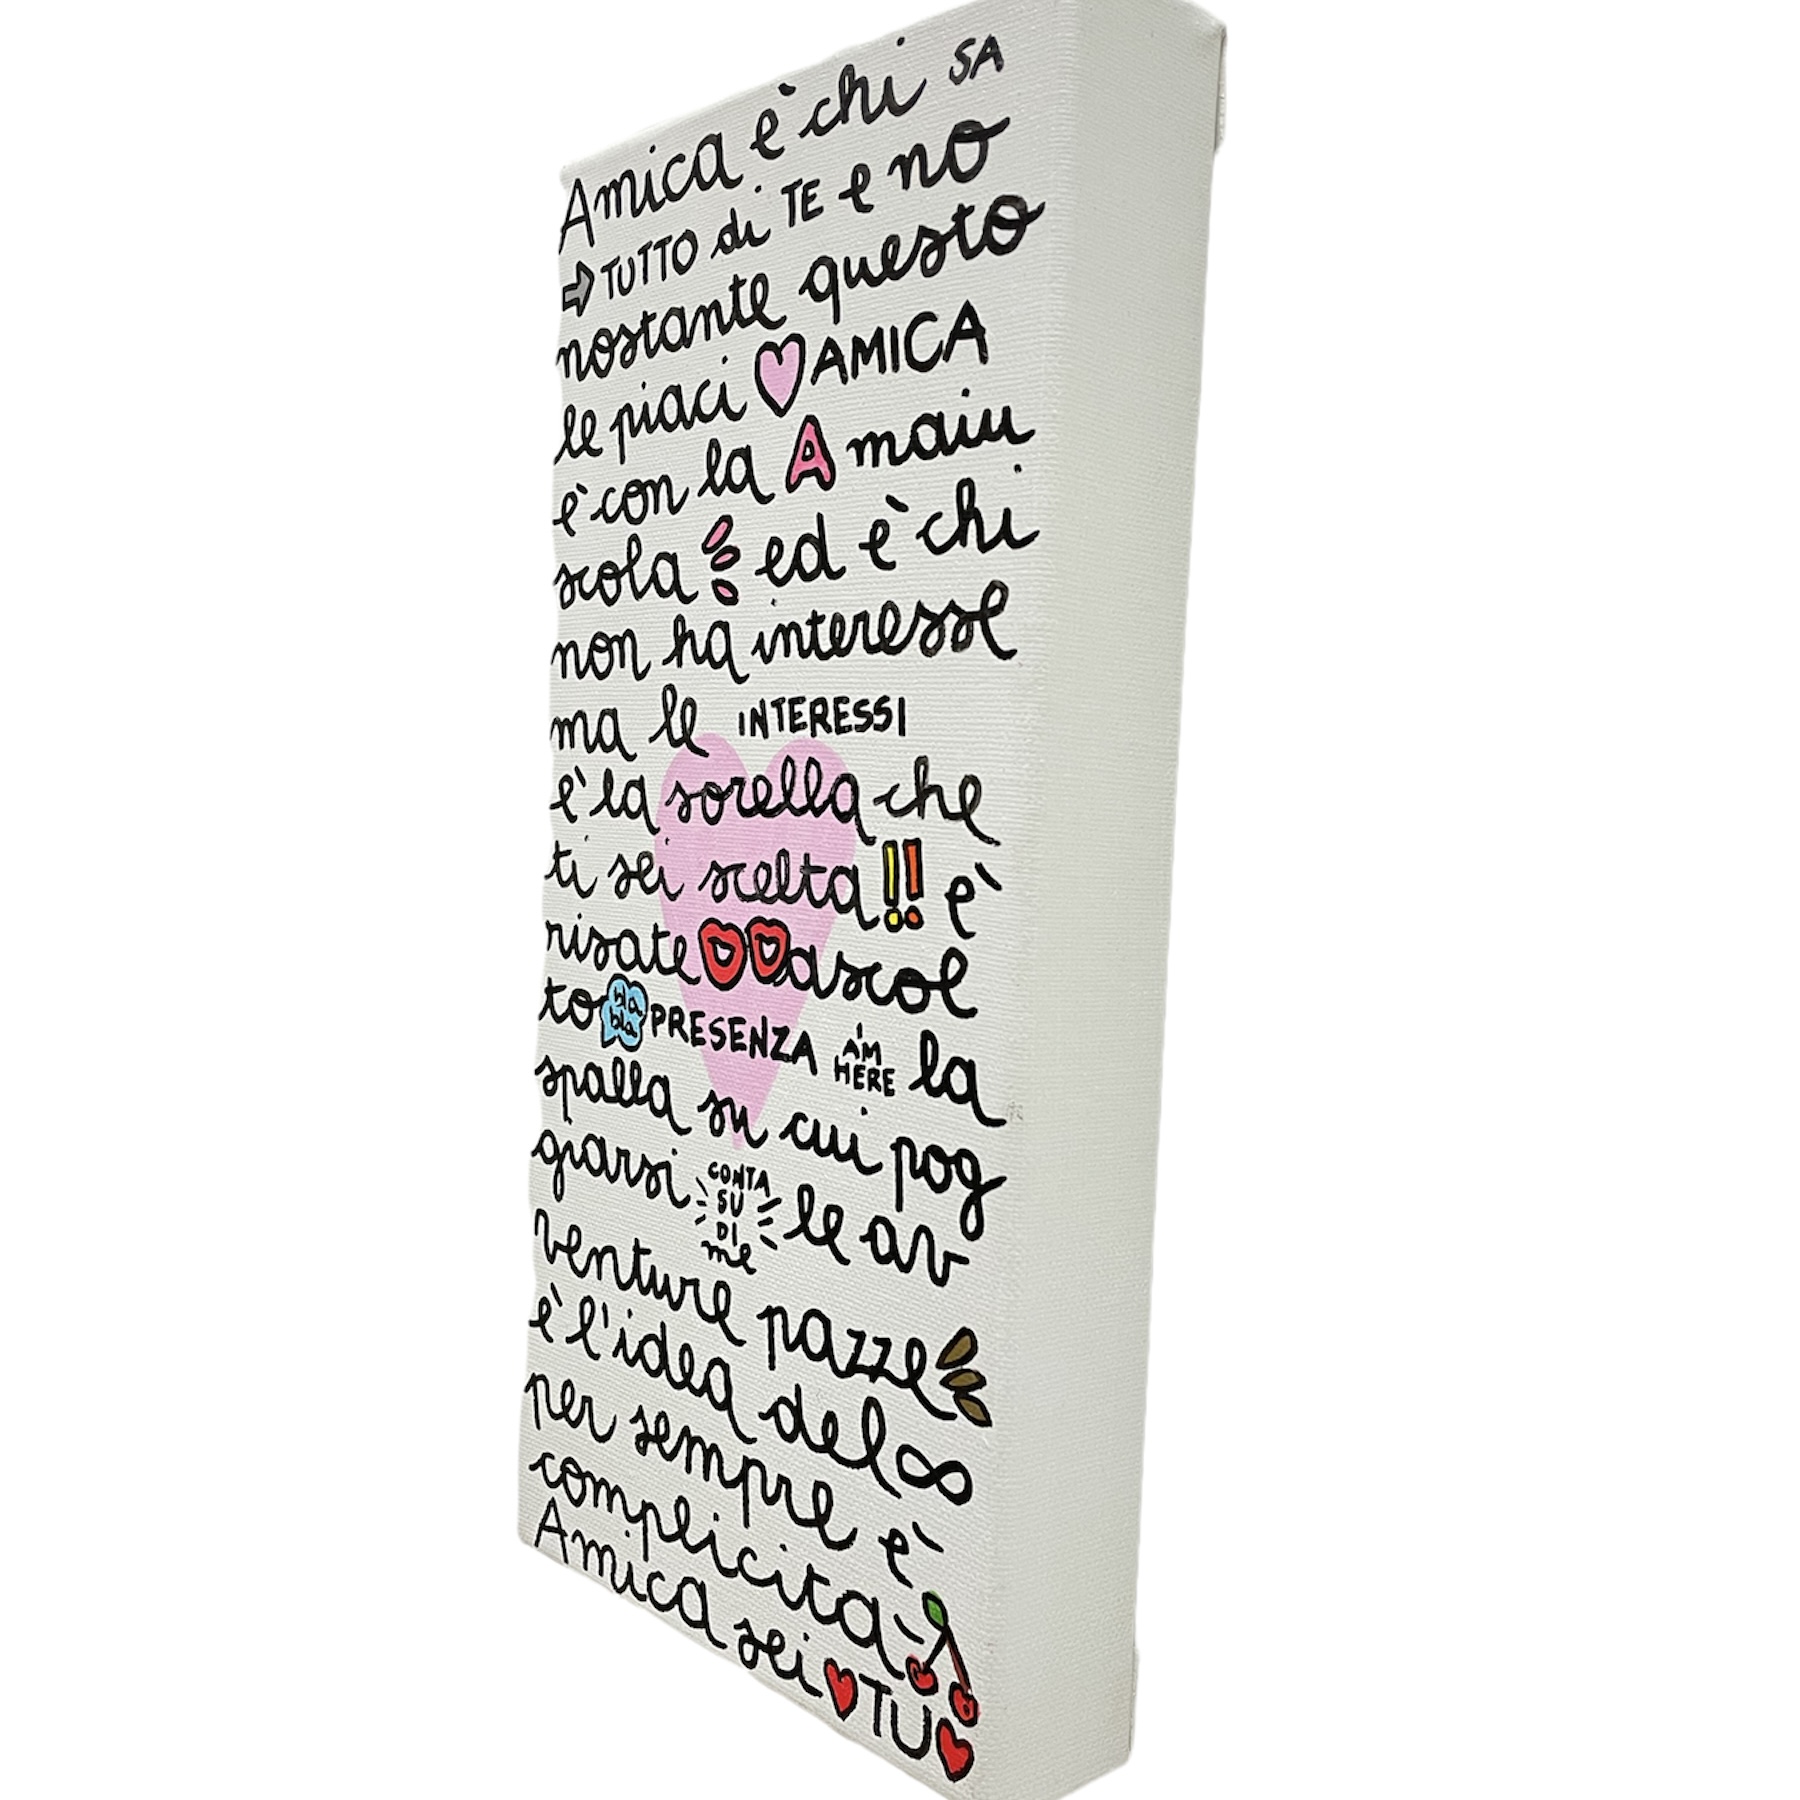 Amica è chi SA
TUTTO di TE e no
nostante questo
le piaci AMICA
è con la A maiu
scola ed è chi
non ha interesse
ma le INTERESSI
è la sorella che
ti sei scelta!! è
risate ascol
to bla bla PRESENZA I AM HERE la
spalla su cui pog
giarsi CONTA SU DI me le av
venture pazze
è l'idea del ∞
per sempre è
complicità
Amica sei TU